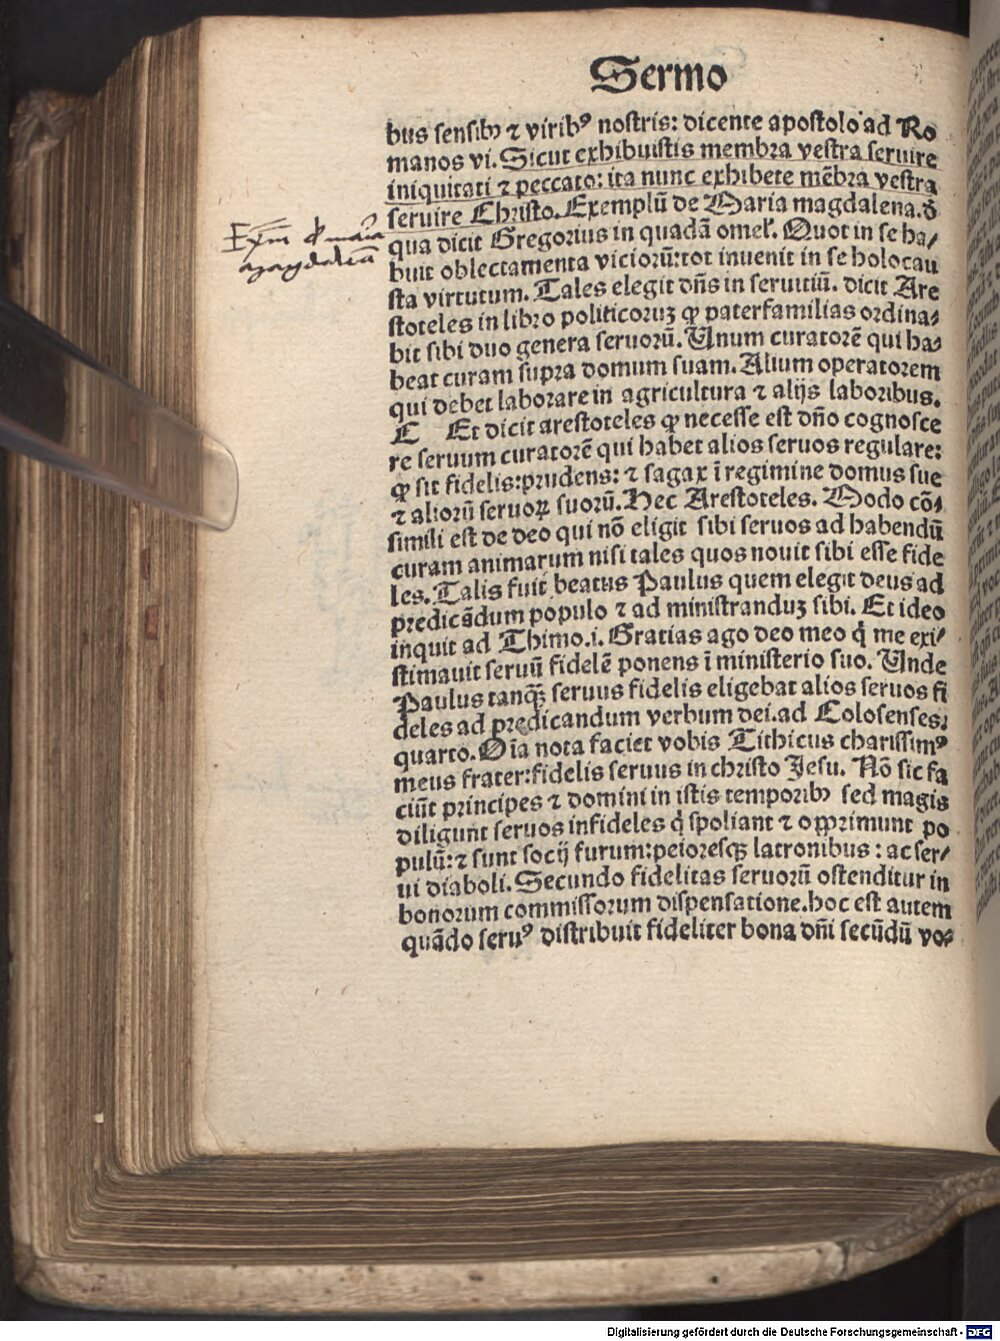 Sermo
bus sensibꝫ ⁊ viribꝰ nostris: dicente apostolo ad Ro
manos vi. Sicut exhibuistis membra vestra seruire
iniquitati ⁊ peccato: ita nunc exhibete mēbra vestra
seruire Christo. Exemplū de Maria magdalena. đ
Exm̄ de maria
magdalena
qua dicit Gregorius in quadā omel'. Quot in se ha/
buit oblectamenta viciorū: tot inuenit in se holocau
sta virtutum. Tales elegit dn̄s in seruitiū. dicit Are
stoteles in libro politicoruꝫ ꝙ paterfamilias ordina/
bit sibi duo genera seruorū. Unum curatorē qui ha/
beat curam supra domum suam. Alium operatorem
qui debet laborare in agricultura ⁊ alijs laboribus.
C Et dicit arestoteles ꝙ necesse est dn̄o cognosce
re seruum curatorē qui habet alios seruos regulare:
ꝙ sit fidelis: prudens: ⁊ sagax ī regimine domus sue
⁊ aliorū seruoꝝ suorū. Hec Arestoteles. Modo cō/
simili est de deo qui nō eligit sibi seruos ad habendū
curam animarum nisi tales quos nouit sibi esse fide
les. Talis fuit beatus Paulus quem elegit deus ad
predicādum populo ⁊ ad ministranduꝫ sibi. Et ideo
inquit ad Thimo. i. Gratias ago deo meo q̇ me exi/
stimauit seruū fidelē ponens ī ministerio suo. Unde
Paulus tanꝙꝫ seruus fidelis eligebat alios seruos fi
deles ad predicandum verbum dei. ad Colosenses.
quarto. Oīa nota faciet vobis Tithicus charissimꝰ
meus frater: fidelis seruus in christo Jesu. Nō sic fa
ciūt principes ⁊ domini in istis temporibꝫ sed magis
diligunt seruos infideles q̇ spoliant ⁊ opprimunt po
pulū: ⁊ sunt socij furum: peioresqꝫ latronibus: ac ser/
ui diaboli. Secundo fidelitas seruorū ostenditur in
bonorum commissorum dispensatione. hoc est autem
quādo seruꝰ distribuit fideliter bona dn̄i secūdū vo/
Digitalisierung gefördert durch die Deutsche Forschungsgemeinschaft - DFG